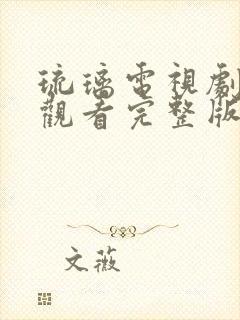 琉璃電視劇
觀看完整版
文薇